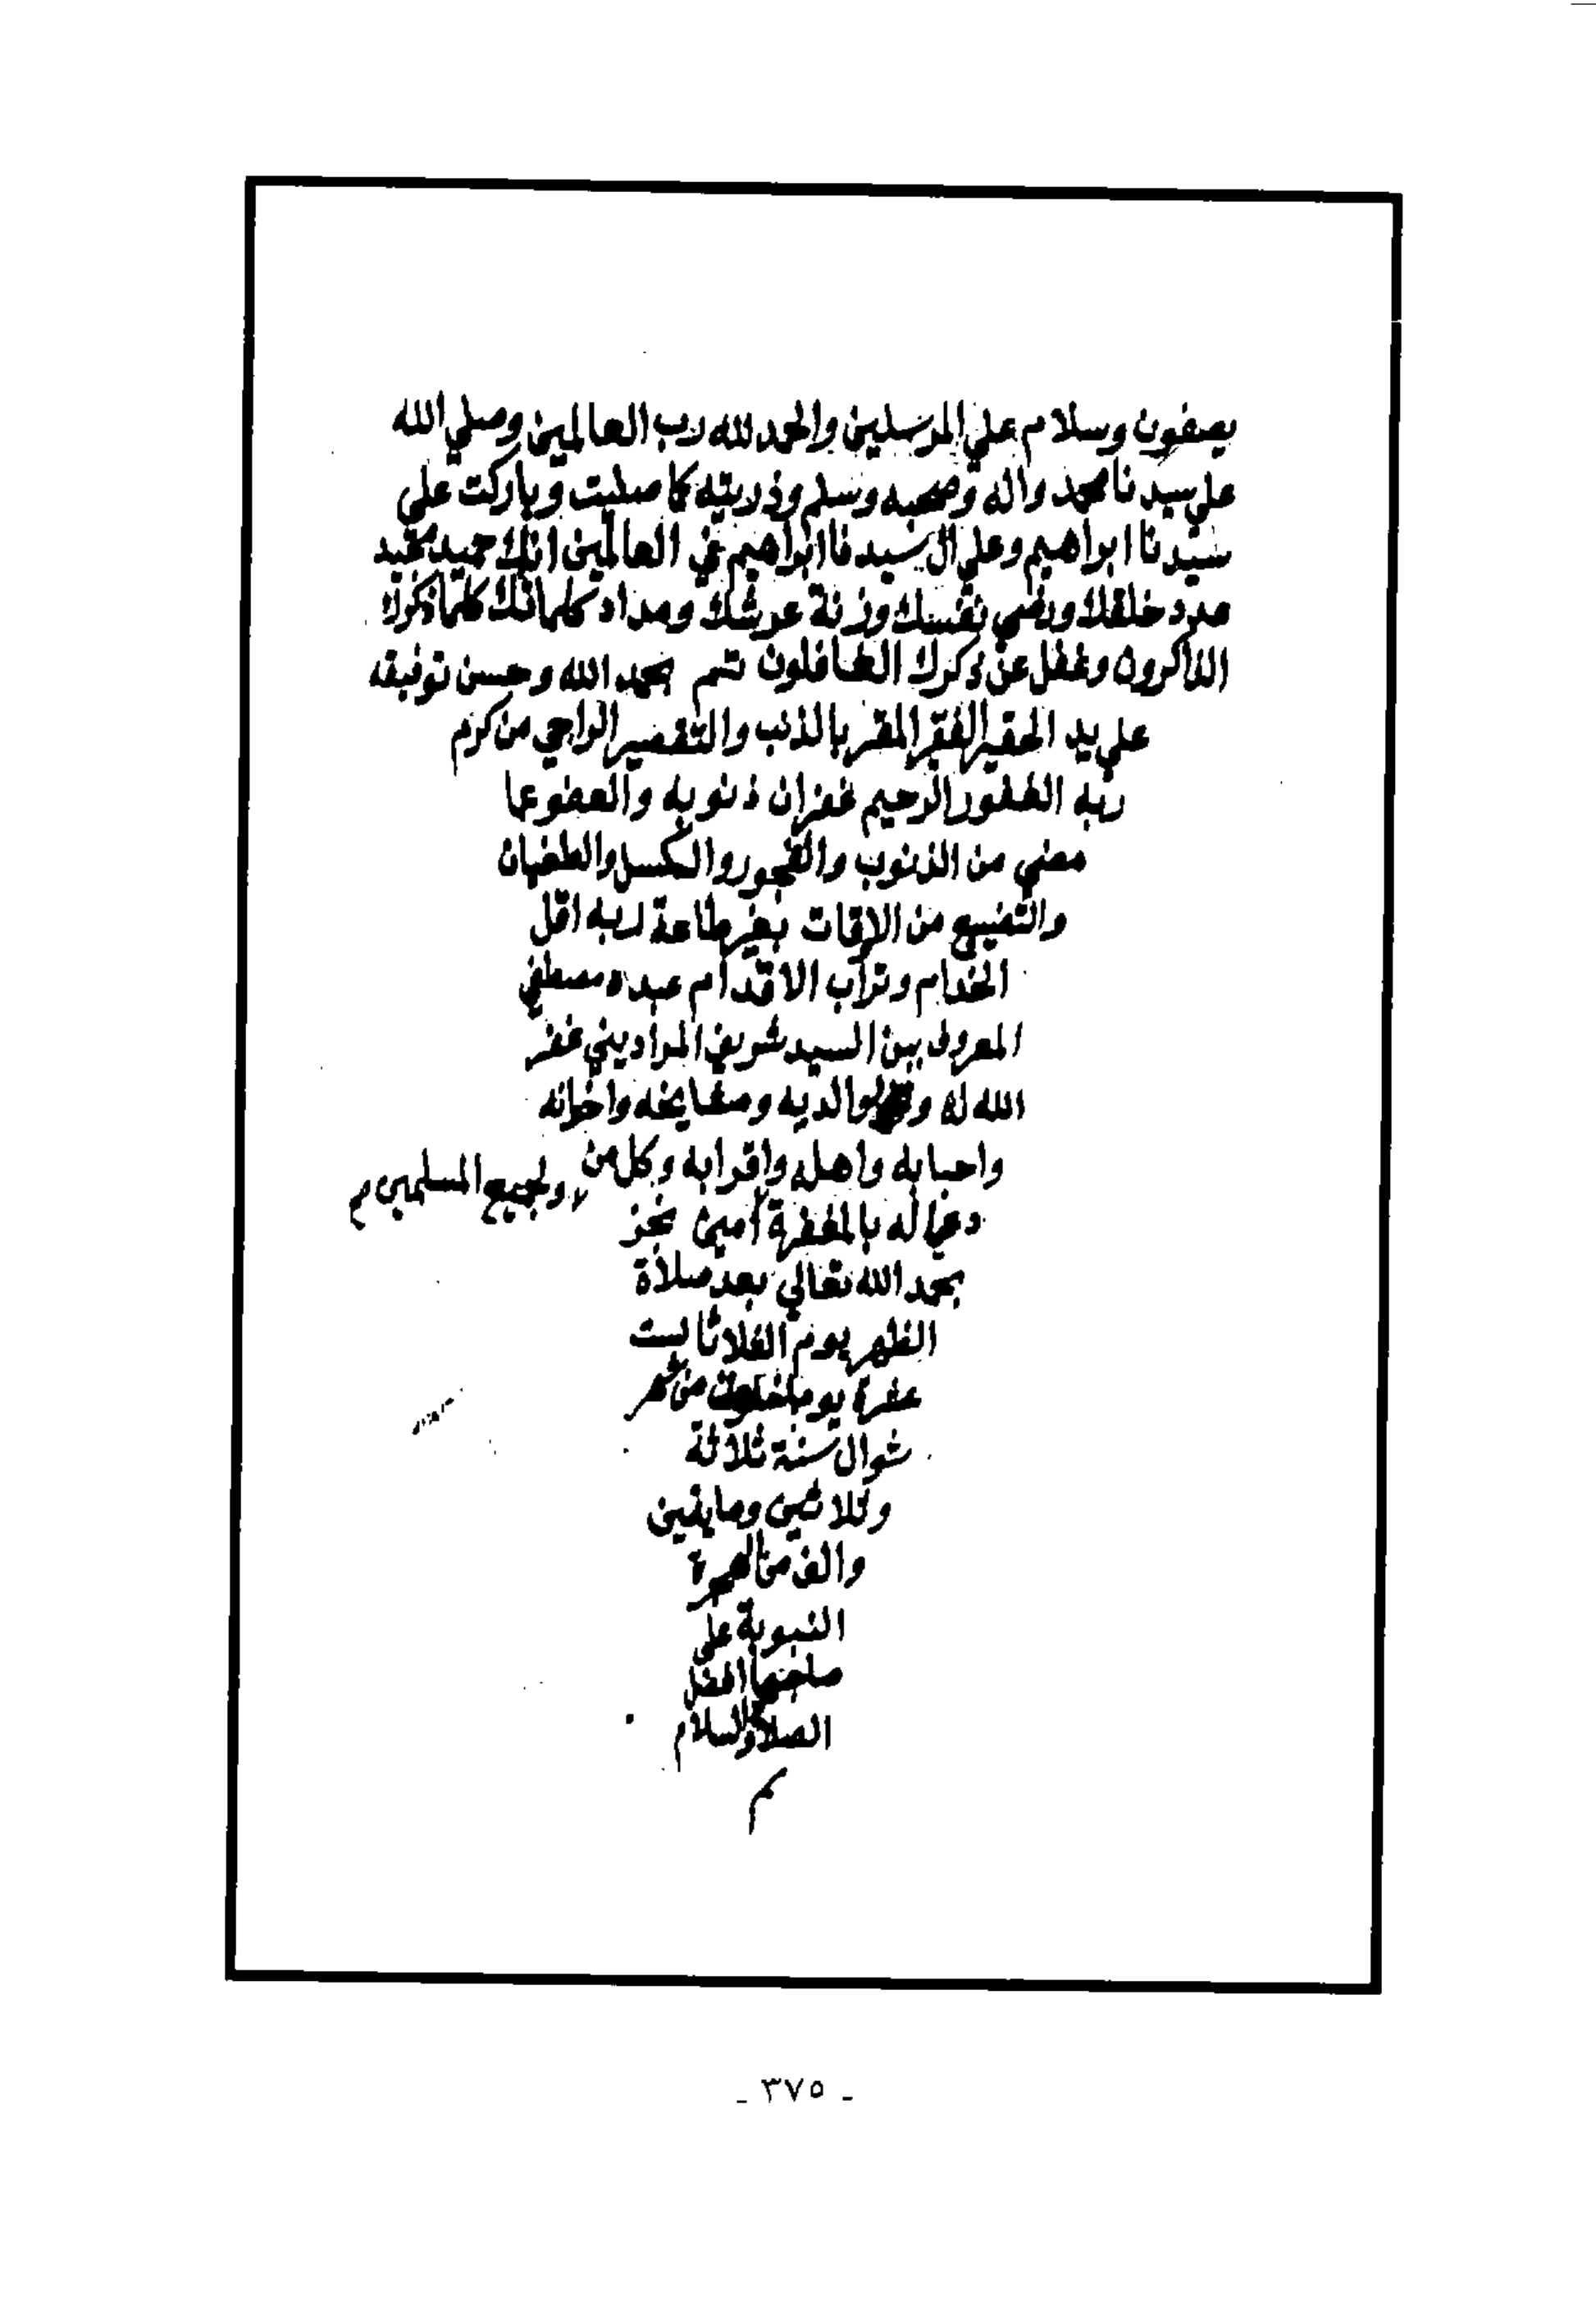 يصفون وسلام علي المرسلين والحمد لله رب العالمين وصلي الله
علي سيدنا محمد واله وصحبه وسلم وذريته كما صليت وباركت علي
سيدنا ابراهيم وعلي ال سيدنا ابراهيم في العالمين انك حميد مجيد
عدد خلقك ورضي نفسك وزنة عرشك ومداد كلماتك كلما ذكرك
الذاكرون وغفل عن ذكرك الغافلون تم بحمد الله وحسن توفيقه
علي يد الحقير الفقير المقر بالذنب والتقصير الراجي من كرم
ربه الغفور الرحيم غفران ذنوبه والعفو عما
مضي من الذنوب والفجور والكسل والطغيان
والتضييع من الاوقات بغير طاعة لربه اقل
الخدام وتراب الاقدام عبده مصطفي
المعروف بين السيد شريف المراديني غفر
الله له ولوالديه ومشايخه واخوانه
واحبابه واهله واقرابه وكل من
دعا له بالمغفرة امين
ولجميع المسلمين م
بحمد الله تعالي بعد صلاة
الظهر يوم الثلاثا لست
عشرة يوما من
شوال سنة ثلاثة
وثلاثين ومايتين
والف من الهجرة
النبوية علي
صاحبها افضل
الصلاة والسلام
م
- ٣٧٥ -